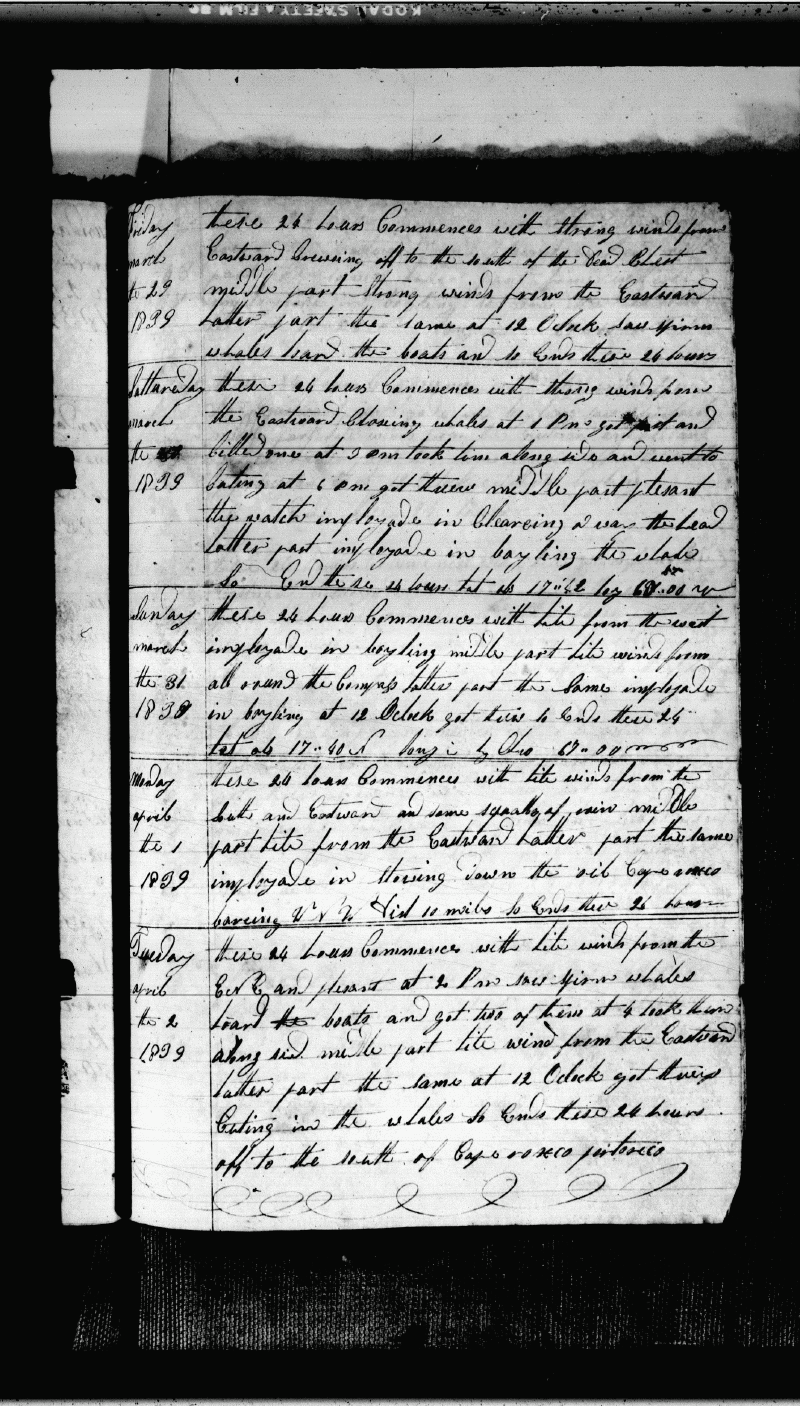 KODAK SAFETY A FILM
Friday these 24 hours Commences with strong winds from
march Eastward Cruising off to the south of the Dead Chest
the 29 middle part strong winds from the Eastward
1839 Latter part the same at 12 Oclock saw
whales loard the boats and so Ends these 24 hours
Sattareday these 24 hours Commences with strong winds from
march the Eastward Chasing whales at 1 Pm got fast and
the killed one at 3 Pm took him along side and went to
1839 Cuting at 6 Pm got threw middle part plesant
the watch imployade in Clearing away the head
latter part imployade in boyling the whale
So Ends these 24 hours lat ob 17:42 log 00
Sunday these 24 hours Commences with lite from the west
march imployade in boyling middle part lite winds from
the 31 all round the Compass latter part the Same imployade
1839 in boyling at 12 Oclock got threw So Ends these 24
lat ob 17:40 N long by Chro 67:00
Monday these 24 hours Commences with lite winds from the
april South and Eastward and some squalls of rain middle
the 1 part lite from the Eastward Latter part the same
1839 imployade in stowing down the oil Cape roxco
bareing N N W Dist 10 miles So Ends these 24 hours
Tuesday these 24 hours Commences with lite winds from the
april E N E and plesant at 2 Pm saw whales
the 2 loard the boats and got two of them at 4 took them
1839 along sid middle part lite wind from the Eastward
latter part the same at 12 Oclock got threw
Cuting in the whales So Ends these 24 hours
off to the south of Cape roxco portorico